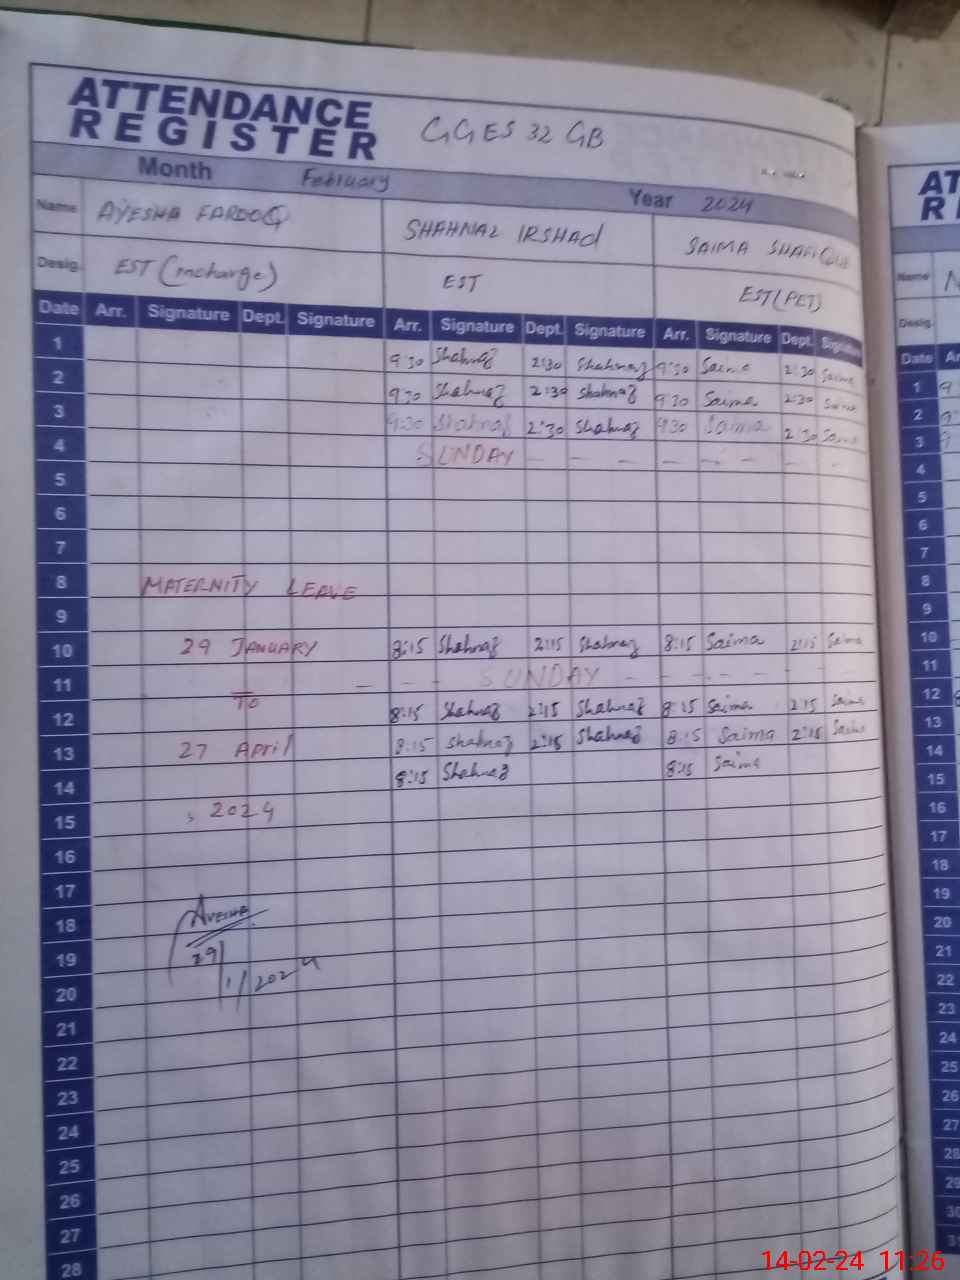 ATTENDANCE
REGISTER
GGES 32 GB
Month February Year 2024
Name AYESHA FAROOQ SHAHNAZ IRSHAd SAIMA SHAFIQUE
Desig. EST (incharge) EST EST (PET)
Date Arr. Signature Dept. Signature Arr. Signature Dept. Signature Arr. Signature Dept. Signature
1 9:30 Shahnaz 2:30 Shahnaz 9:30 Saima 2:30 Saima
2 9:30 Shahnaz 2:30 Shahnaz 9:30 Saima 2:30 Saima
3 9:30 Shahnaz 2:30 Shahnaz 9:30 Saima 2:30 Saima
4 SUNDAY – – – – – – – –
5
6
7
8 MATERNITY LEAVE
9
10 29 JANUARY 8:15 Shahnaz 2:15 Shahnaz 8:15 Saima 2:15 Saima
11 – – – SUNDAY – – – – – –
12 To 8:15 Shahnaz 2:15 Shahnaz 8:15 Saima 2:15 Saima
13 27 April 8:15 Shahnaz 2:15 Shahnaz 8:15 Saima 2:15 Saima
14 8:15 Shahnaz 8:15 Saima
15 , 2024
16
17
18 Ayesha
19 29/1/2024
20
21
22
23
24
25
26
27
28
AT
R
Name N
Desig.
Date Ar
1 9
2 9
3 9
4
5
6
7
8
9
10
11
12 8
13
14
15
16
17
18
19
20
21
22
23
24
25
26
27
28
29
30
31
14-02-24 11:26